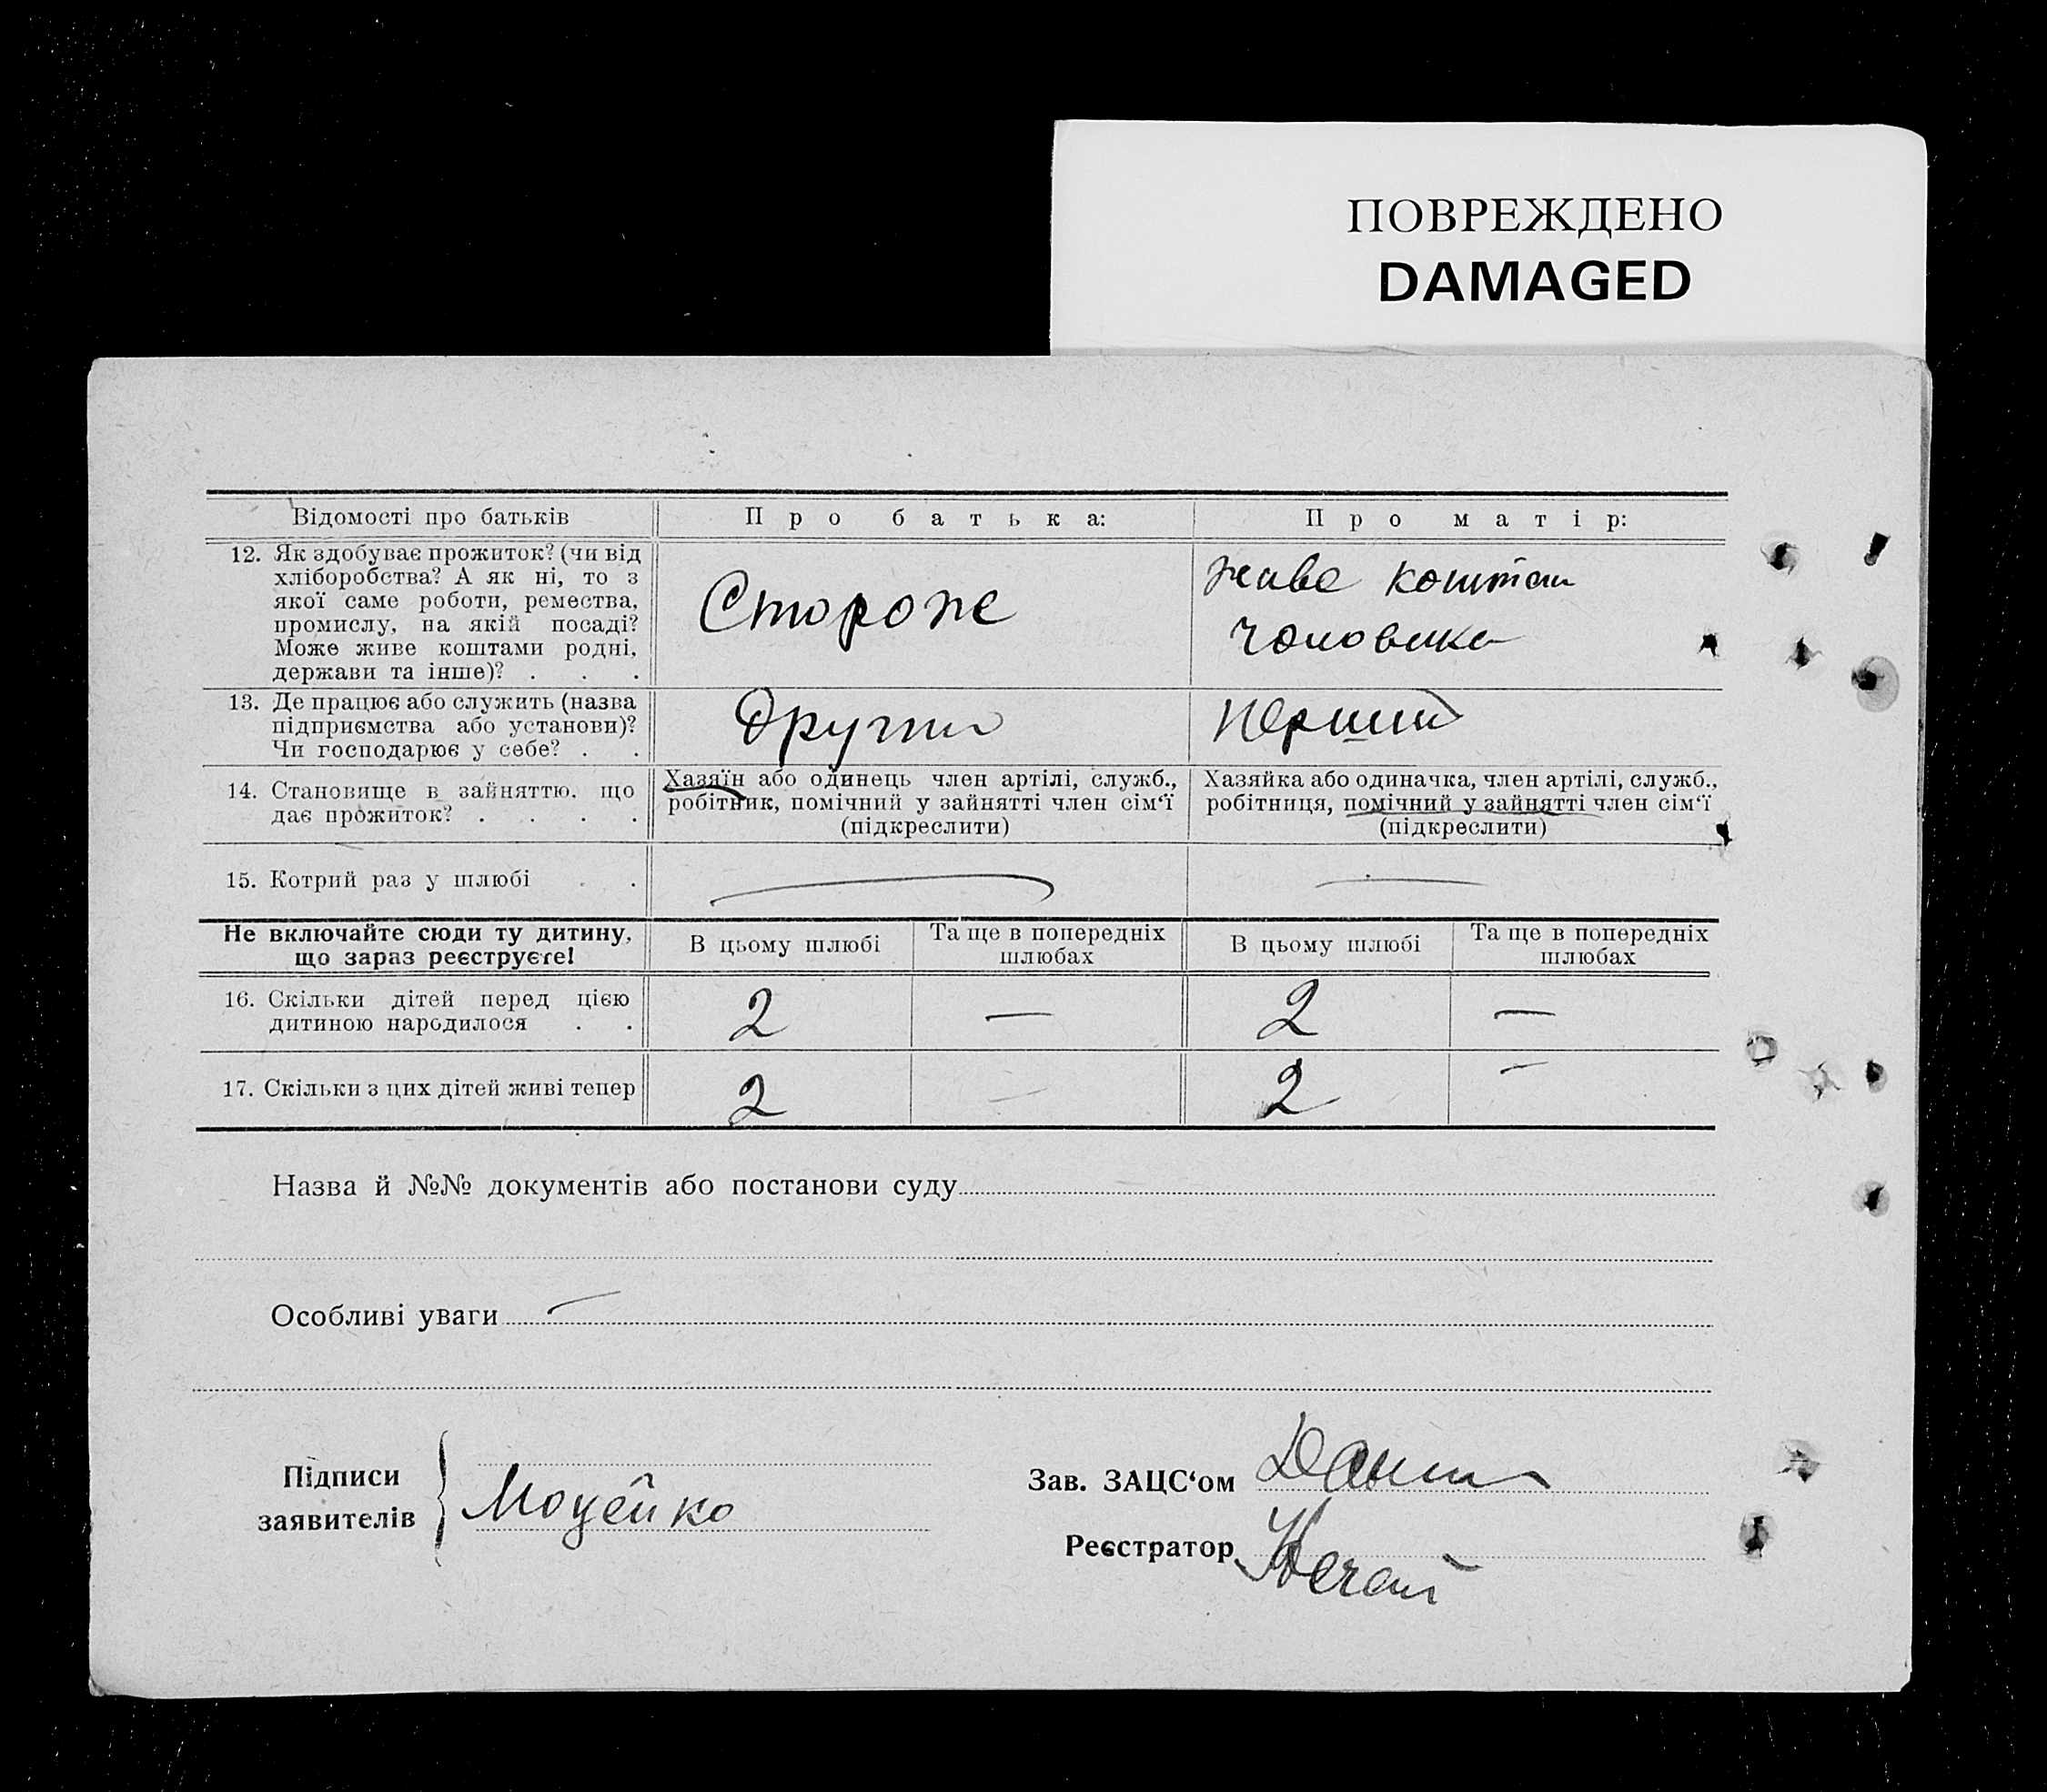 ПОВРЕЖДЕНО
DAMAGED
Відомості про батьків
Про батька:
Про матір:
12. Як здобуває прожиток? (чи від
хліборобства? А як ні, то з
якої саме роботи, ремества,
промислу, на якій посаді?
Може живе коштами родні,
держави та інше)? . . .
Сторож
живе коштом
чоловика
13. Де працює або служить (назва
підприємства або установи)?
Чи господарює у себе? . .
Другий
Перший
14. Становище в зайняттю, що
дає прожиток? . . . .
Хазяїн або одинець член артілі, служб.,
робітник, помічний у зайнятті член сім‘ї
(підкреслити)
Хазяйка або одиначка, член артілі, служб.,
робітниця, помічний у зайнятті член сім‘ї
(підкреслити)
15. Котрий раз у шлюбі . .
— —
Не включайте сюди ту дитину,
що зараз реєструєте!
В цьому шлюбі
Та ще в попередніх
шлюбах
В цьому шлюбі
Та ще в попередніх
шлюбах
16. Скільки дітей перед цією
дитиною народилося . .
2 — 2 —
17. Скільки з цих дітей живі тепер
2 — 2 —
Назва й №№ документів або постанови суду
Особливі уваги —
Підписи
заявителів
Моцейко
Зав. ЗАЦС‘ом
Реєстратор
Нечай